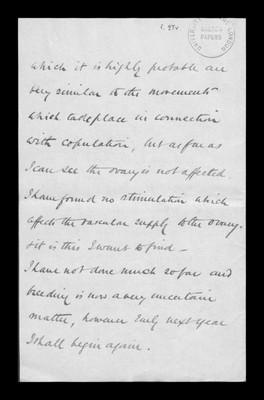 which it is highly probable are
very similar to the movements
which take place in connection
with copulation, but as far as
I can see the ovary is not affected.
I have found no stimulation which
affects the vascular supply to the ovary.
& it is this I want to find –
I have not done much so far and
breeding is now a very uncertain
matter, however early next year
I shall begin again.